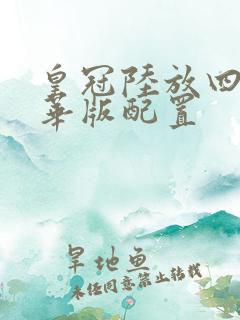 皇冠陸放四
華版配置
旱地鱼
未经同意禁止转载